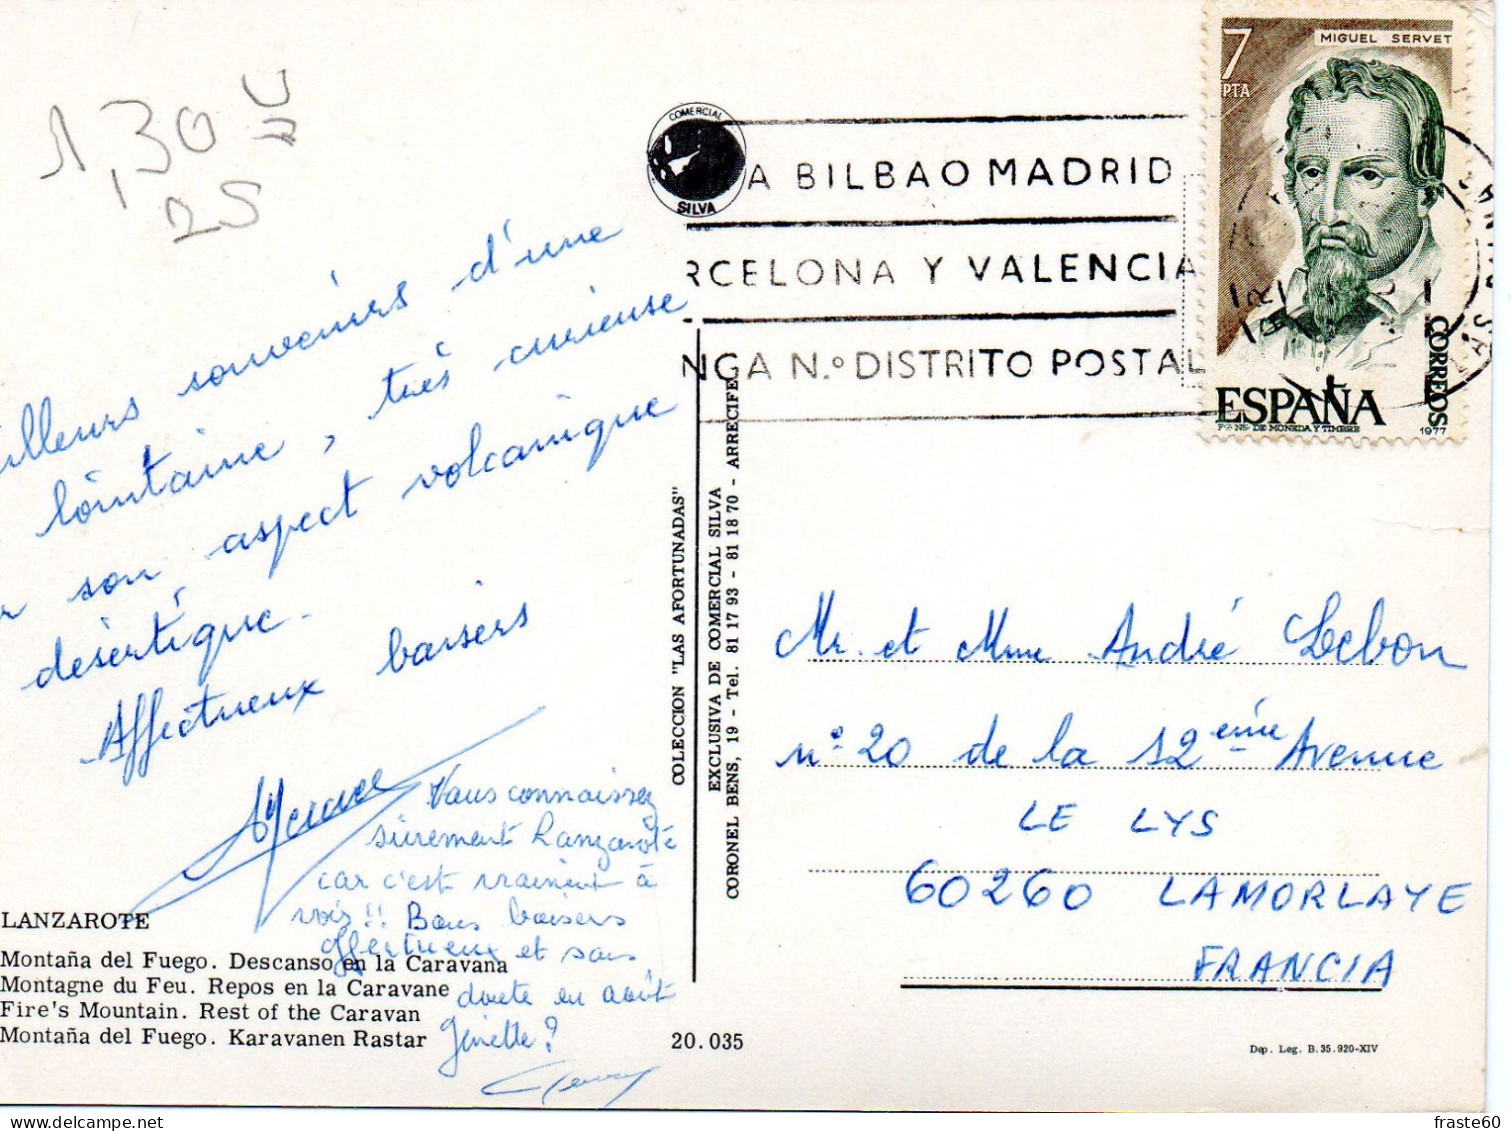 1,30
25
illeurs souvenirs d'une
lointaine, très curieuse
son aspect volcanique
désertique.
Affectueux baisers
Vous connaissez
sûrement Lanzarote
car c'est vraiment à
voir!! Bons baisers
affectueux et sans
doute en août
Ginette?
LANZAROTE
Montaña del Fuego. Descanso en la Caravana
Montagne du Feu. Repos en la Caravane
Fire's Mountain. Rest of the Caravan
Montaña del Fuego. Karavanen Rastar
20.035
COLECCION "LAS AFORTUNADAS"
EXCLUSIVA DE COMERCIAL SILVA
CORONEL BENS, 19 - Tel. 81 17 93 - 81 18 70 - ARRECIFE
COMERCIAL
SILVA
A BILBAO MADRID
RCELONA Y VALENCIA
NGA N.º DISTRITO POSTAL
7
PTA
MIGUEL SERVET
CORREOS
ESPAÑA
F.N. DE MONEDA Y TIMBRE
1977
Mr. et Mme André Lebon
n° 20 de la 12ème Avenue
LE LYS
60260 LAMORLAYE
FRANCIA
Dep. Leg. B. 35.920-XIV
fraste60